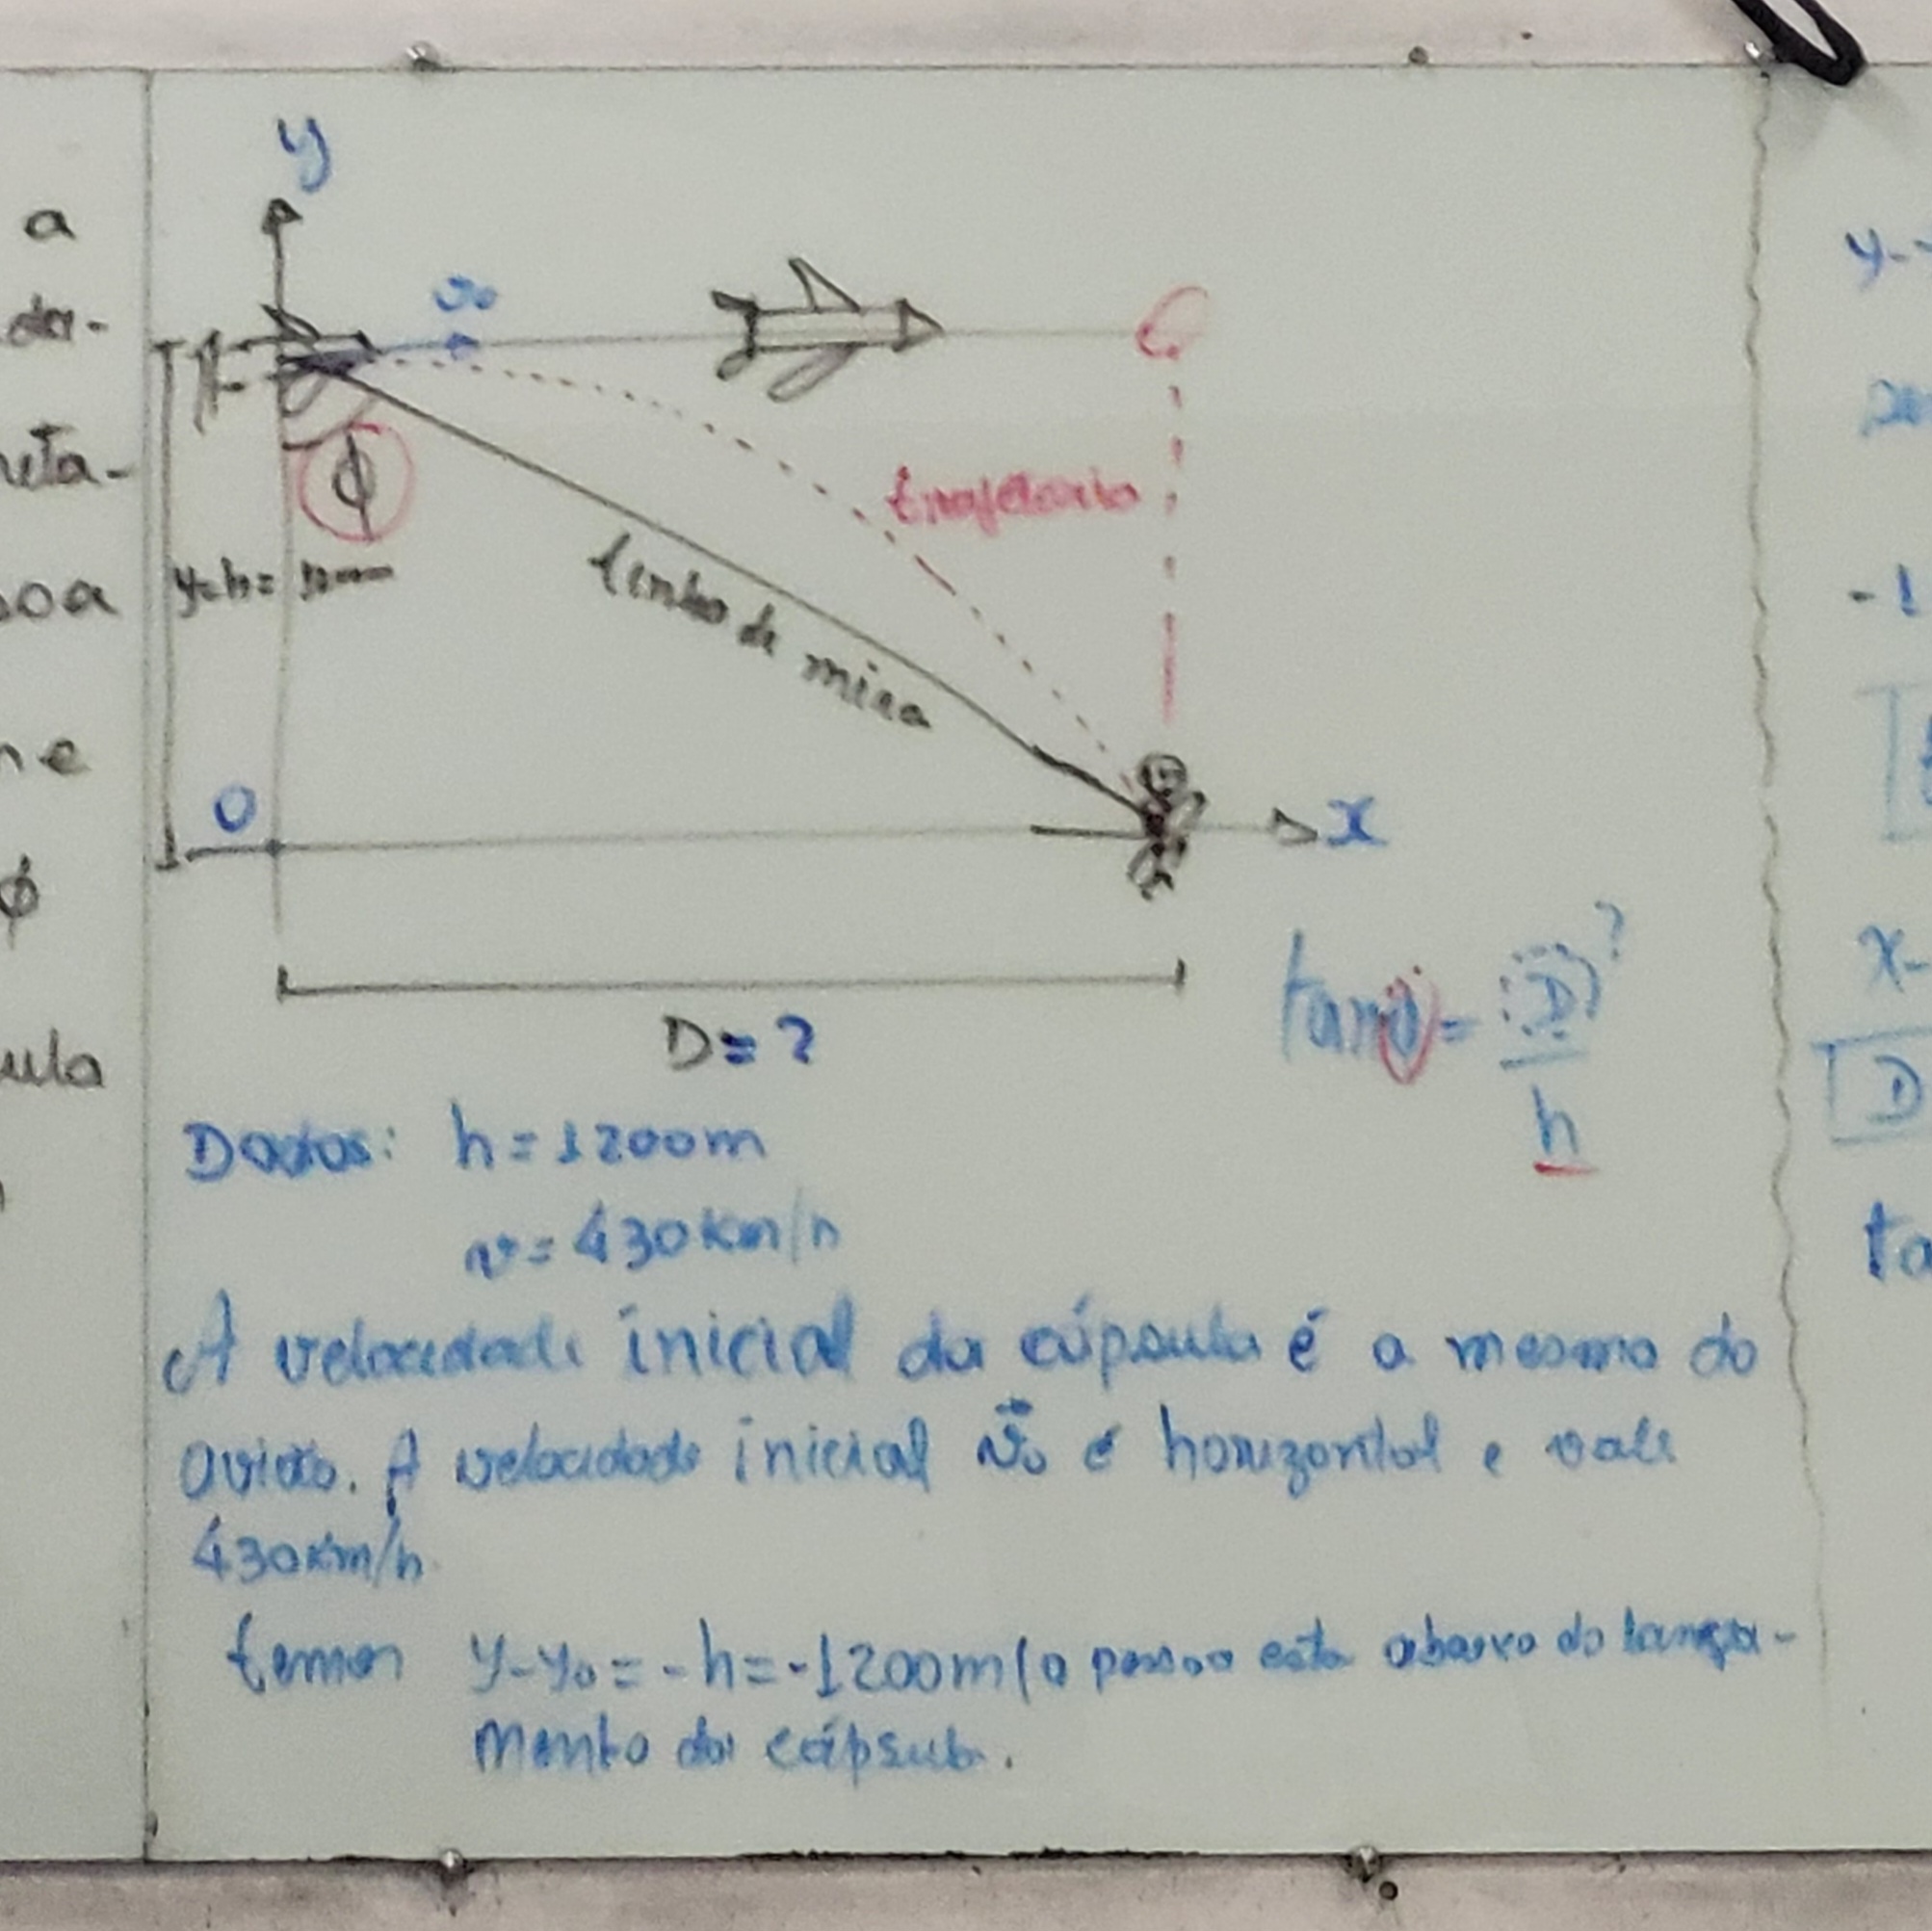 a
da-
reta-
soa
ne
ϕ
ula
y
v₀
ϕ
trajetoria
y=h=
linha de mira
O
x
D=?
tanϕ = D?
h
Dados: h=1200m
v=430km/h
A velocidade inicial da cápsula é a mesma do
avião. A velocidade inicial v⃗₀ é horizontal e vale
430km/h
temos y-y₀=-h=-1200m(a pessoa esta abaixo do lança-
mento da cápsula.
y-
-1
x-
D
ta